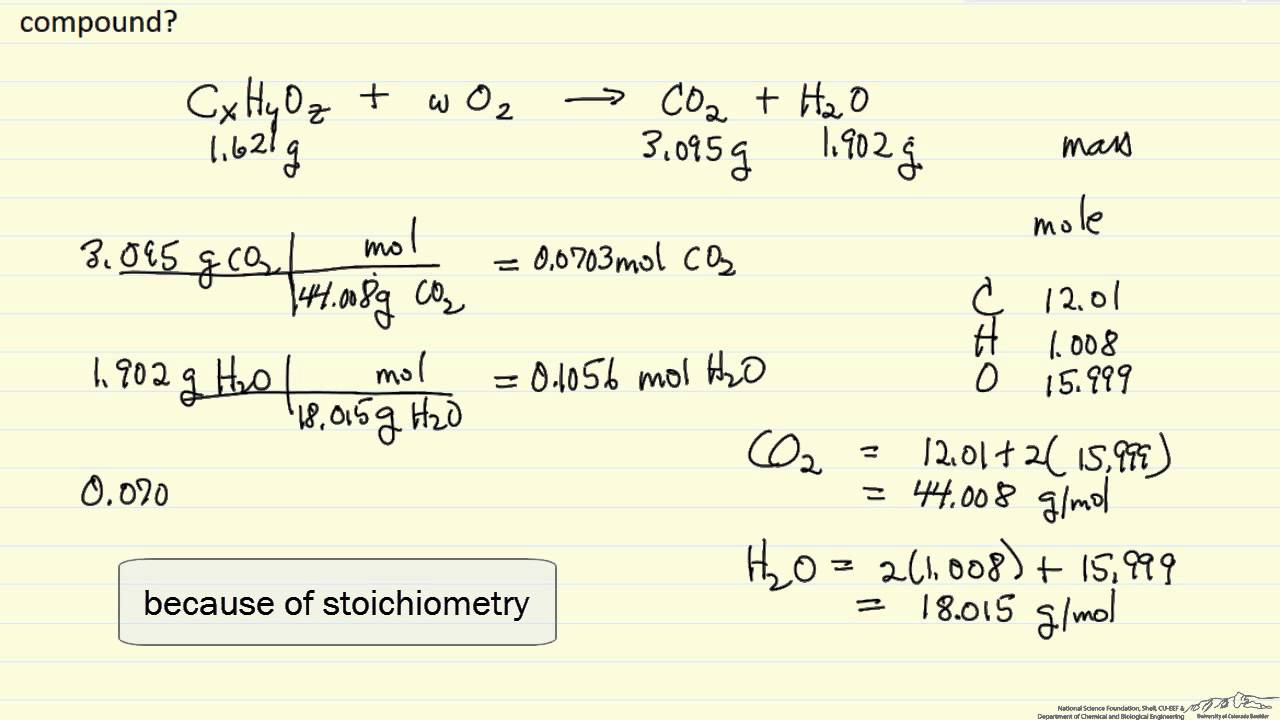 compound?
CxHyOz + w O2 → CO2 + H2O
1.621 g 3.095 g 1.902 g mass
mole
3.095 g CO2 | mol = 0.0703 mol CO2
44.008 g CO2
C 12.01
H 1.008
O 15.999
1.902 g H2O | mol = 0.1056 mol H2O
18.015 g H2O
CO2 = 12.01 + 2(15.999)
= 44.008 g/mol
0.070
H2O = 2(1.008) + 15.999
= 18.015 g/mol
because of stoichiometry
National Science Foundation, Shell, CU-EEF &
Department of Chemical and Biological Engineering
University of Colorado Boulder